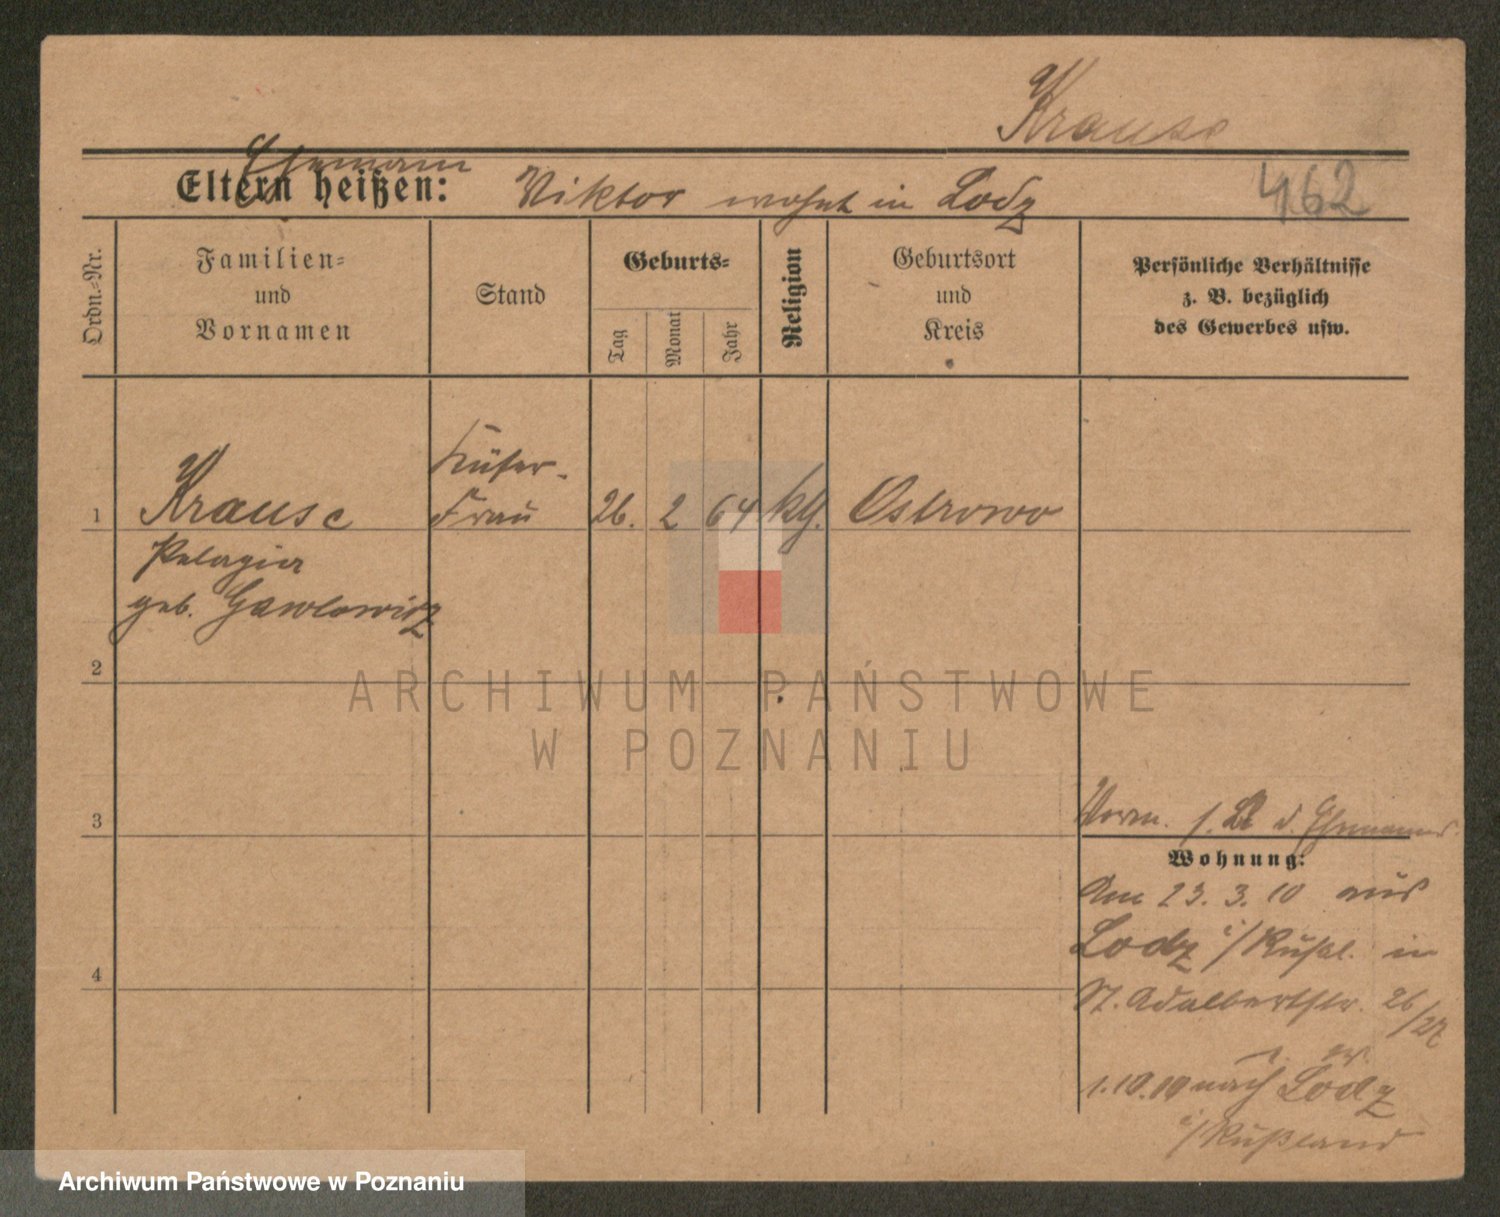 Krause
Ehemann
Eltern heißen: Viktor wohnt in Lodz
462
Ordn.-Nr.
Familien-
und
Vornamen
Stand
Geburts-
Tag
Monat
Jahr
Religion
Geburtsort
und
Kreis
Persönliche Verhältnisse
z. B. bezüglich
des Gewerbes usw.
Küfer-
1 Krause Frau 26. 2 64 kth. Ostrowo
Pelagia
geb. Gawlowicz
2
ARCHIWUM PAŃSTWOWE
W POZNANIU
3
Verm. s. d. Ehemannes
Wohnung:
Am 23. 3. 10 aus
Lodz i/Rußl. in
St. Adalbertstr. 26/27
4
1.10.10 nach Lodz
i/Rußland
Archiwum Państwowe w Poznaniu